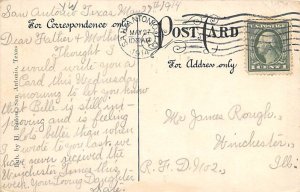 San Antonio Texas, May 27th 1914
For Correspondence only
POST CARD
For Address only
SAN ANTONIO
MAY 27
1914
Dear Father & Mother
Thought I
would write you a
Card this Wednesday
morning to let you know
that Bill is still
and is feeling
no better than when
I wrote to you last, we
have never received the
Winchester
week, Your Loving Daughter
Mr James Rough,
Winchester
R. F. D. No 2.
Ill.
Pub. by H. San Antonio, Texas